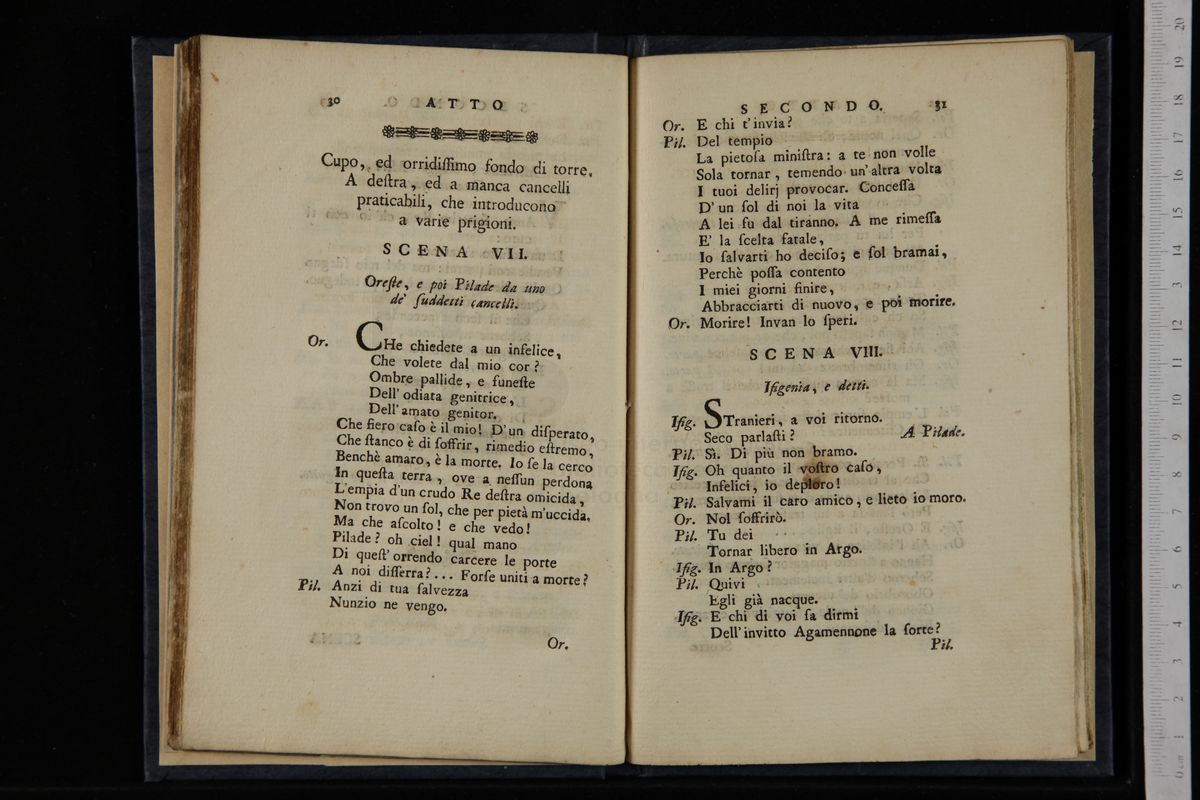 30 ATTO
Cupo, ed orridiſſimo fondo di torre.
A deſtra, ed a manca cancelli
praticabili, che introducono
a varie prigioni.
SCENA VII.
Oreſte, e poi Pilade da uno
de' ſuddetti cancelli.
Or. CHe chiedete a un infelice,
Che volete dal mio cor?
Ombre pallide, e funeſte
Dell' odiata genitrice,
Dell' amato genitor.
Che fiero caſo è il mio! D'un diſperato,
Che ſtanco è di ſoffrir, rimedio eſtremo,
Benchè amaro, è la morte. Io ſe la cerco
In queſta terra, ove a neſſun perdona
L'empia d'un crudo Re deſtra omicida,
Non trovo un ſol, che per pietà m'uccida.
Ma che aſcolto! e che vedo!
Pilade? oh ciel! qual mano
Di queſt' orrendo carcere le porte
A noi diſſerra?... Forſe uniti a morte?
Pil. Anzi di tua ſalvezza
Nunzio ne vengo.
Or.
SECONDO. 31
Or. E chi t'invia?
Pil. Del tempio
La pietoſa miniſtra: a te non volle
Sola tornar, temendo un' altra volta
I tuoi delirj provocar. Conceſſa
D' un ſol di noi la vita
A lei fu dal tiranno. A me rimeſſa
E' la ſcelta fatale,
Io ſalvarti ho deciſo; e ſol bramai,
Perchè poſſa contento
I miei giorni finire,
Abbracciarti di nuovo, e poi morire.
Or. Morire! Invan lo ſperi.
SCENA VIII.
Ifigenia, e detti.
Ifig. STranieri, a voi ritorno.
Seco parlaſti? A Pilade.
Pil. Sì. Di più non bramo.
Ifig. Oh quanto il voſtro caſo,
Infelici, io deploro!
Pil. Salvami il caro amico, e lieto io moro.
Or. Nol ſoffrirò.
Pil. Tu dei
Tornar libero in Argo.
Ifig. In Argo?
Pil. Quivi
Egli già nacque.
Ifig. E chi di voi ſa dirmi
Dell' invitto Agamennone la ſorte?
Pil.
0 cm 1 2 3 4 5 6 7 8 9 10 11 12 13 14 15 16 17 18 19 20